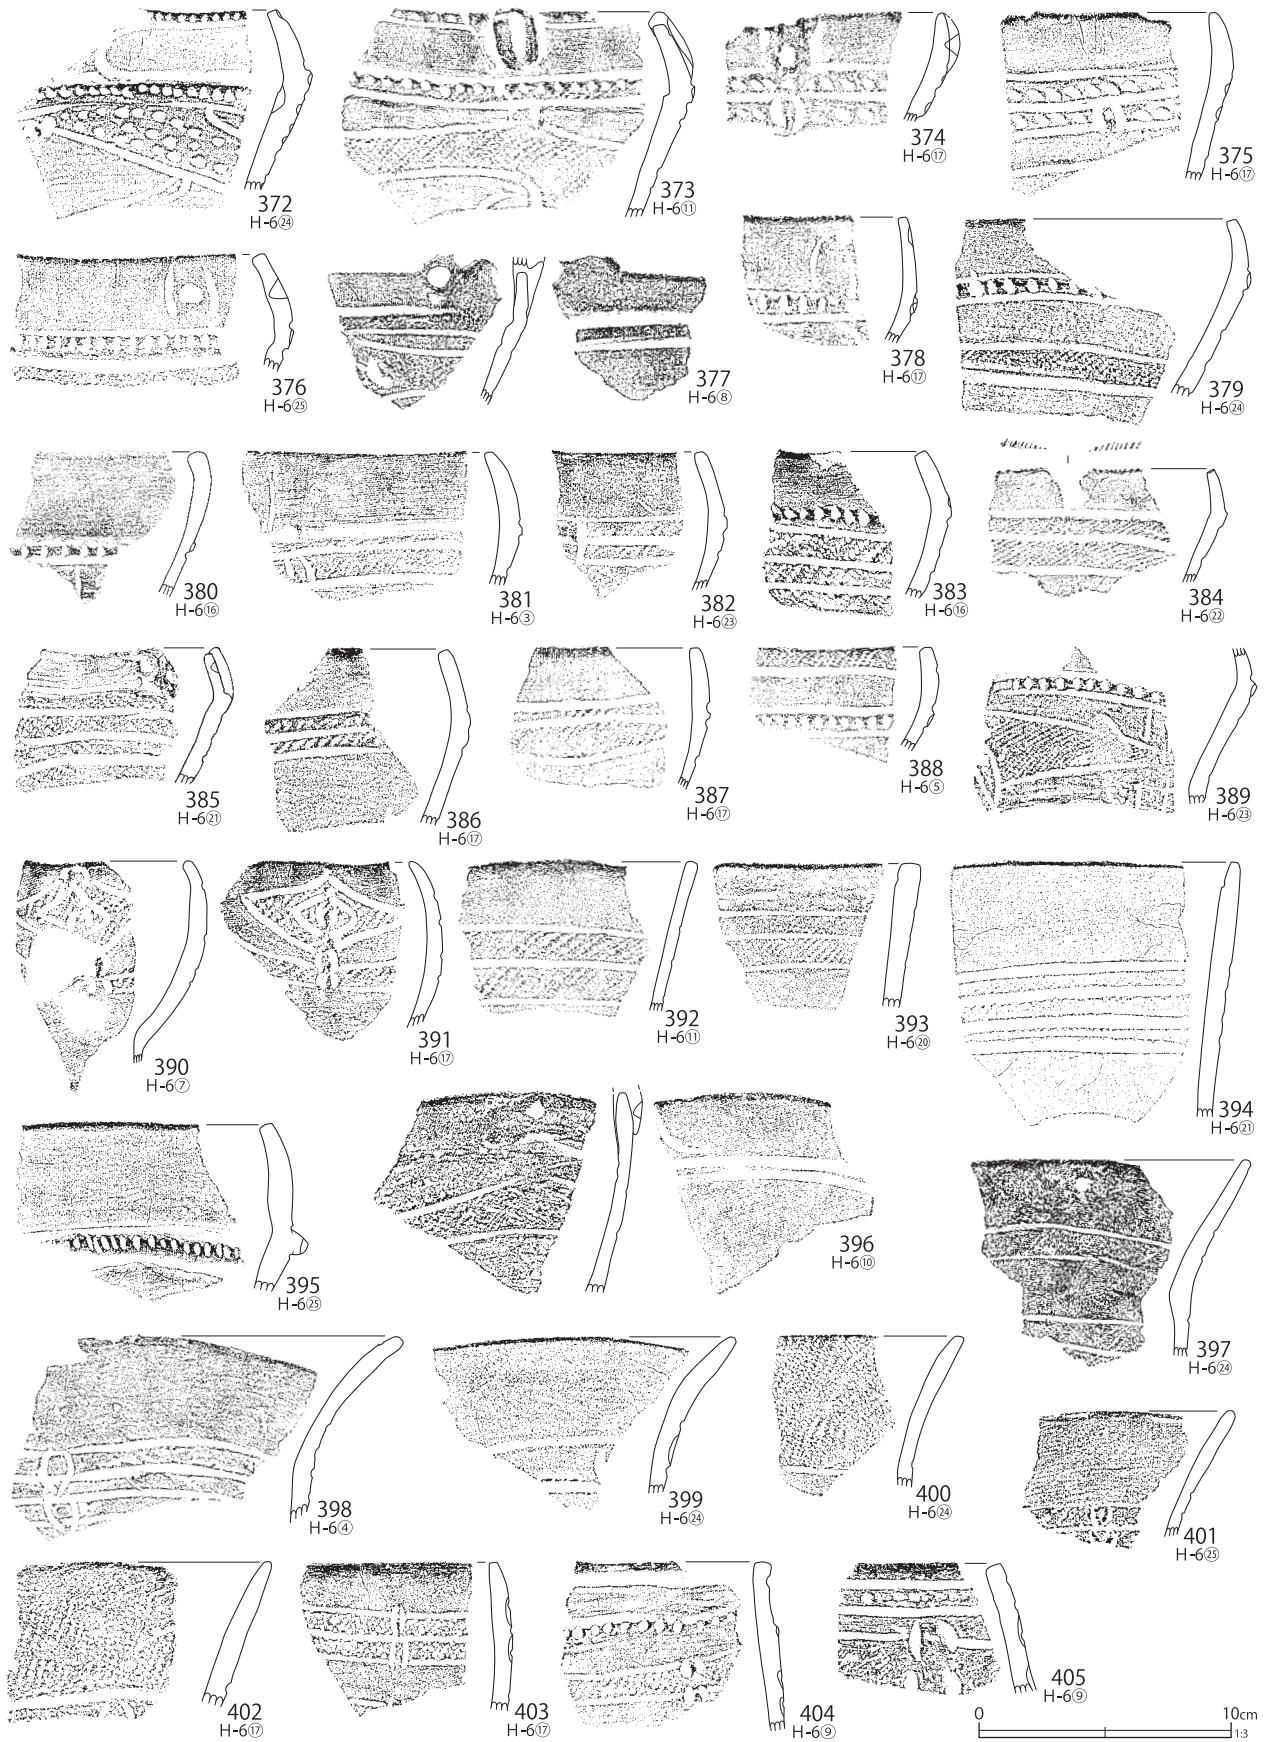 372
H-6㉔
373
H-6⑪
374
H-6⑰
375
H-6⑰
376
H-6㉕
377
H-6⑧
378
H-6⑰
379
H-6㉔
380
H-6⑯
381
H-6③
382
H-6㉓
383
H-6⑯
384
H-6㉒
385
H-6㉑
386
H-6⑰
387
H-6⑰
388
H-6⑤
389
H-6㉓
390
H-6⑦
391
H-6⑰
392
H-6⑪
393
H-6⑳
394
H-6㉑
395
H-6㉕
396
H-6⑩
397
H-6㉔
398
H-6④
399
H-6㉔
400
H-6㉔
401
H-6㉕
402
H-6⑰
403
H-6⑰
404
H-6⑨
405
H-6⑨
0 10cm
1:3